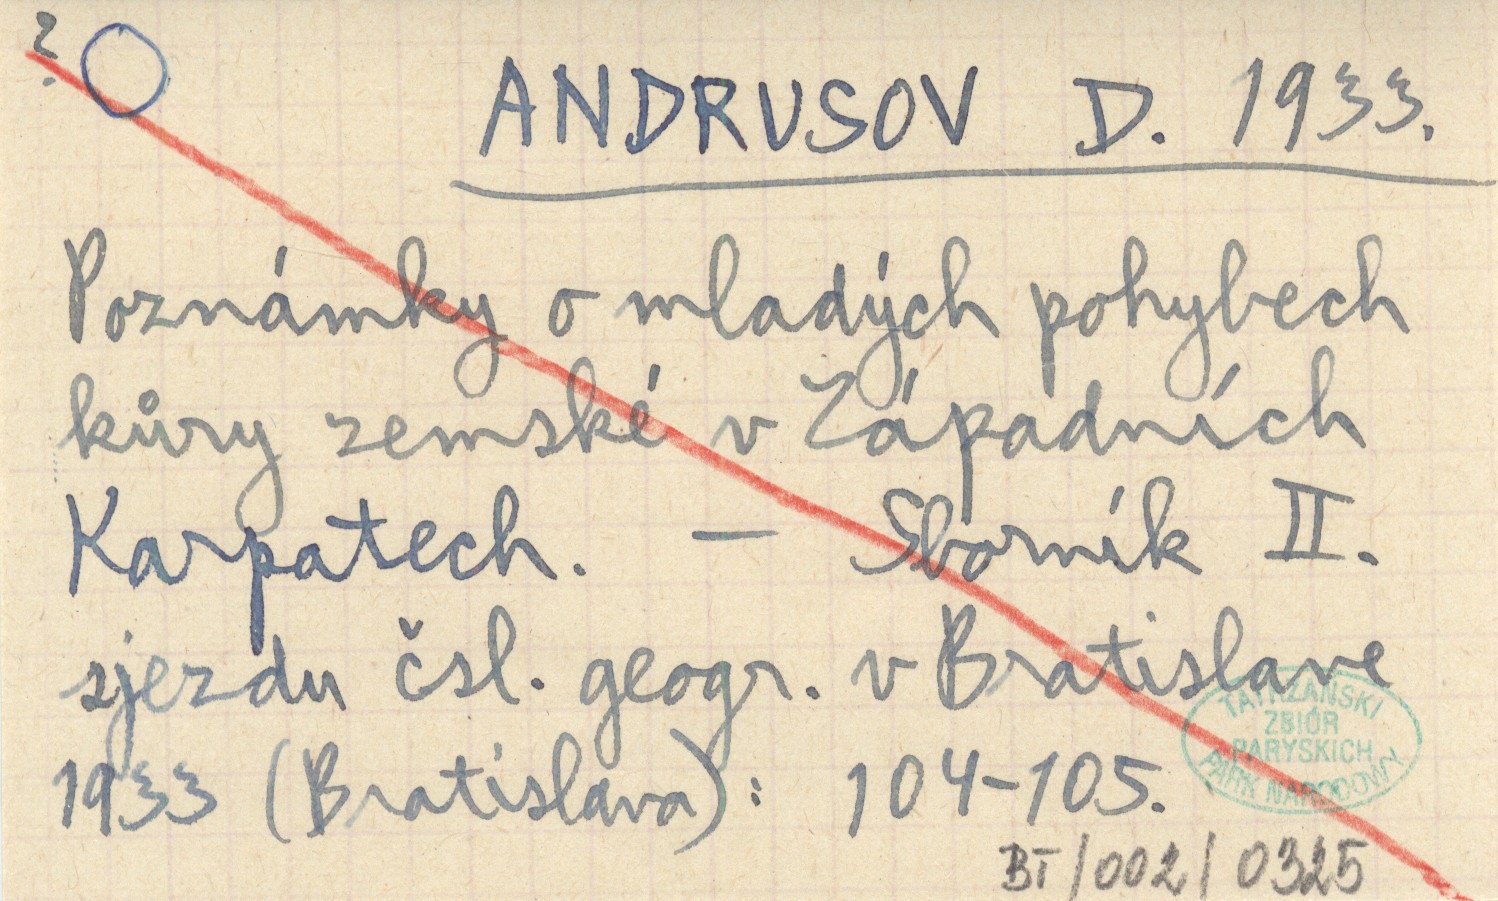 ?
ANDRUSOV D. 1933.
Poznámky o mladých pohybech
kůry zemské v Západních
Karpatech. — Sborník II.
sjezdu čsl. geogr. v Bratislave
1933 (Bratislava): 104-105.
TATRZAŃSKI
ZBIÓR
PARYSKICH
PARK NARODOWY
BT/002/0325